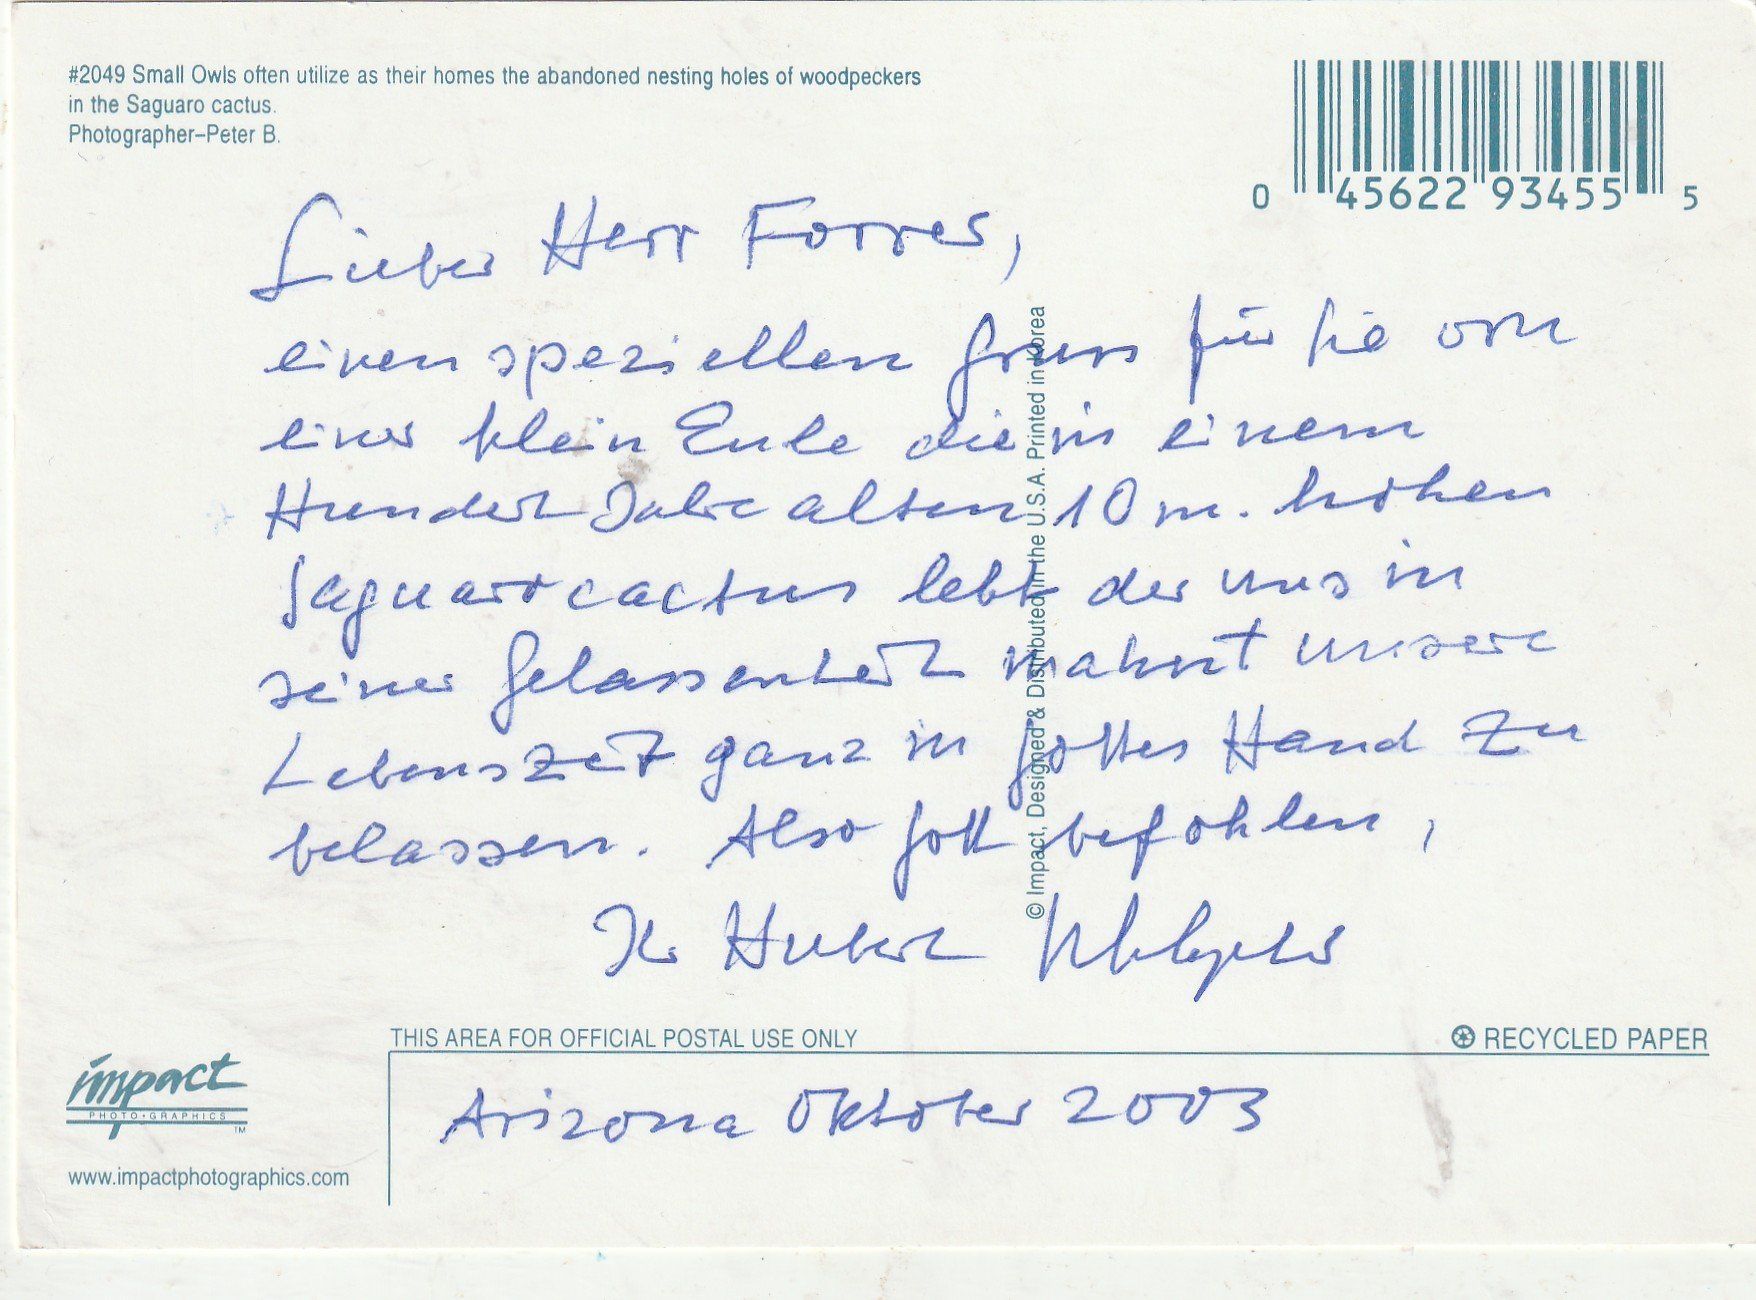 #2049 Small Owls often utilize as their homes the abandoned nesting holes of woodpeckers
in the Saguaro cactus.
Photographer–Peter B.
0 45622 93455 5
Lieber Herr Forrer,
einen speziellen Gruss für Sie von
einer klein Eule die in einem
Hundert Jahre alten 10 m. hohen
Saguarocactus lebt der uns in
seiner Gelassenheit mahnt unsere
Lebenszeit ganz in Gottes Hand zu
belassen. Also Gott befohlen,
Ihr Hubert
© Impact, Designed & Distributed in the U.S.A. Printed in Korea
THIS AREA FOR OFFICIAL POSTAL USE ONLY
RECYCLED PAPER
impact
PHOTO•GRAPHICS
TM
www.impactphotographics.com
Arizona Oktober 2003